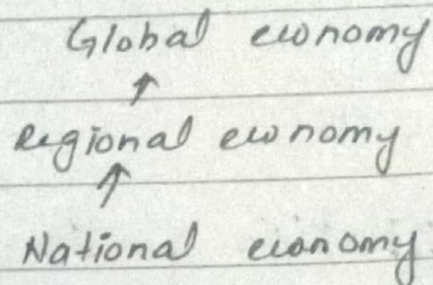 Global economy
↑
Regional economy
↑
National economy